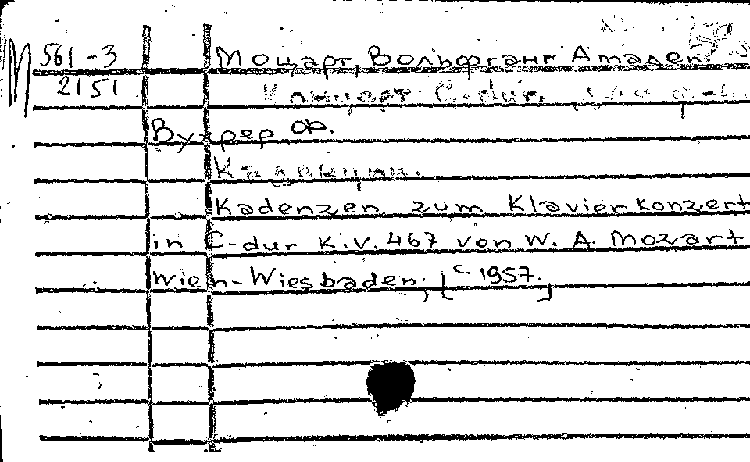 М 561-3 Моцарт, Вольфганг Амадей.
2151 Концерт C-dur, для ф-п.
Вухрер Ф.
Каденции.
Kadenzen zum Klavierkonzert
in C-dur K.V. 467 von W. A. Mozart
Wien-Wiesbaden, [c. 1957.]